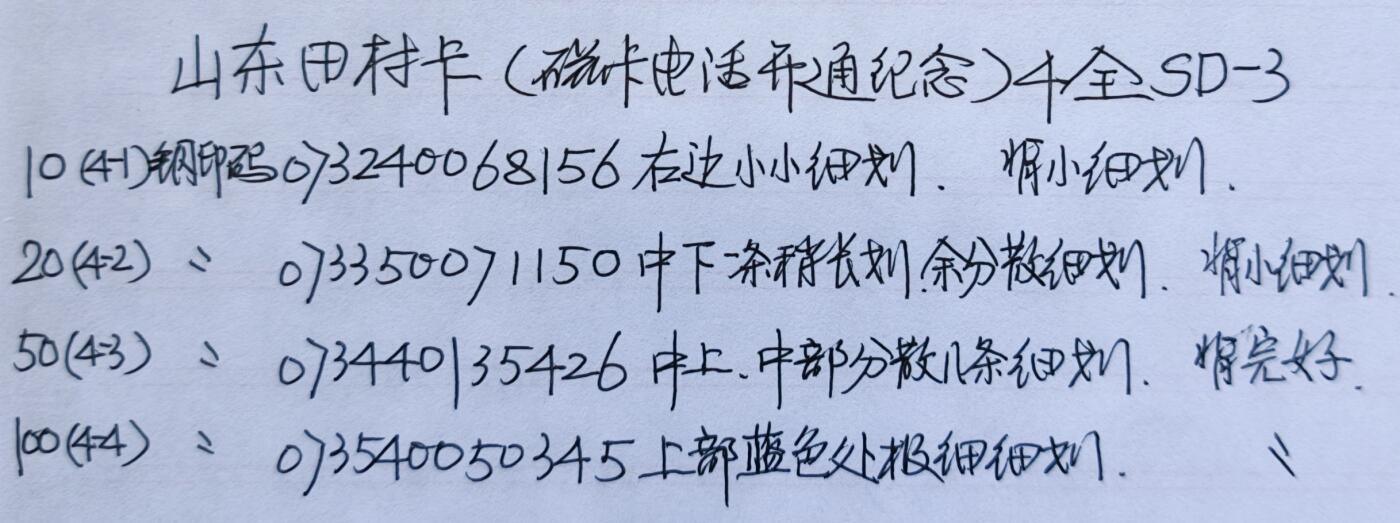 山东田村卡(磁卡电话开通纪念)4全SD-3
10(4-1)钢印码073240068156右边小小细划. 背小细划.
20(4-2) 〃 073350071150中下一条稍长划.余分散细划. 背小细划.
50(4-3) 〃 073440135426中上.中部分散几条细划. 背完好.
100(4-4) 〃 073540050345上部蓝色处极细细划. 〃